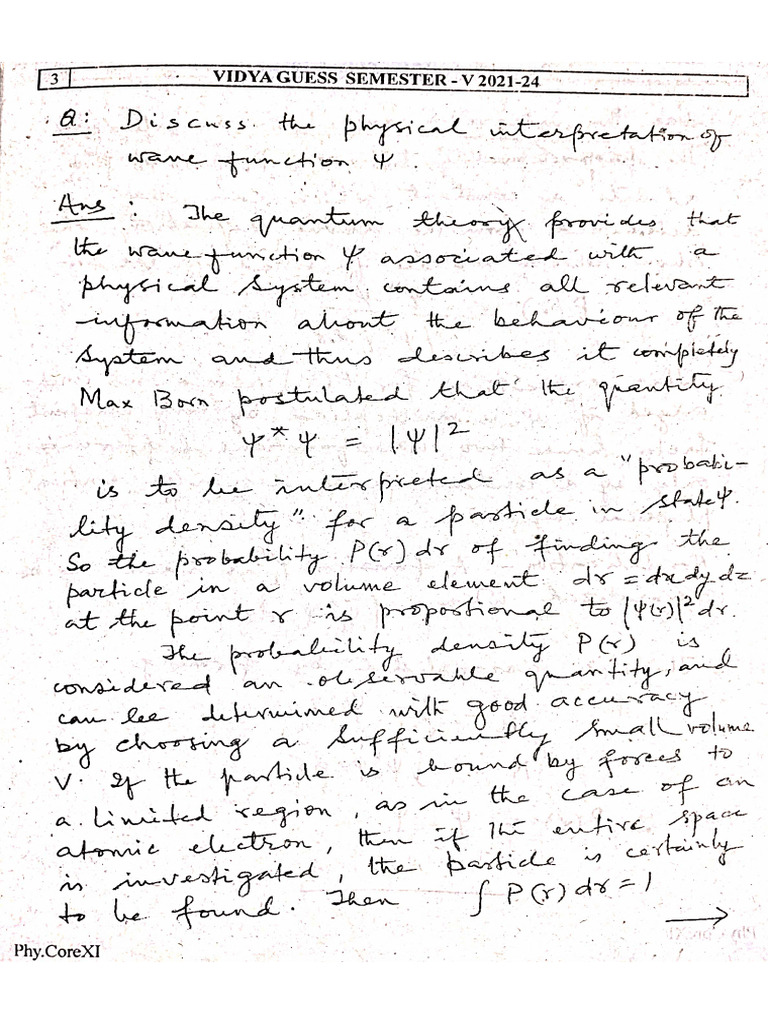 3 VIDYA GUESS SEMESTER - V 2021-24
Q: Discuss the physical interpretation of
wave function ψ.
Ans: The quantum theory provides that
the wave function ψ associated with a
physical system contains all relevant
information about the behaviour of the
system and thus describes it completely
Max Born postulated that the quantity
ψ*ψ = |ψ|²
is to be interpreted as a "probabi-
lity density" for a particle in state ψ.
So the probability P(r)dr of finding the
particle in a volume element dr = dxdydz
at the point r is proportional to |ψ(r)|²dr.
The probability density P(r) is
considered an observable quantity, and
can be determined with good accuracy
by choosing a sufficiently small volume
V. If the particle is bound by forces to
a limited region, as in the case of an
atomic electron, then if the entire space
is investigated, the particle is certainly
to be found. Then ∫P(r)dr = 1
→
Phy.CoreXI